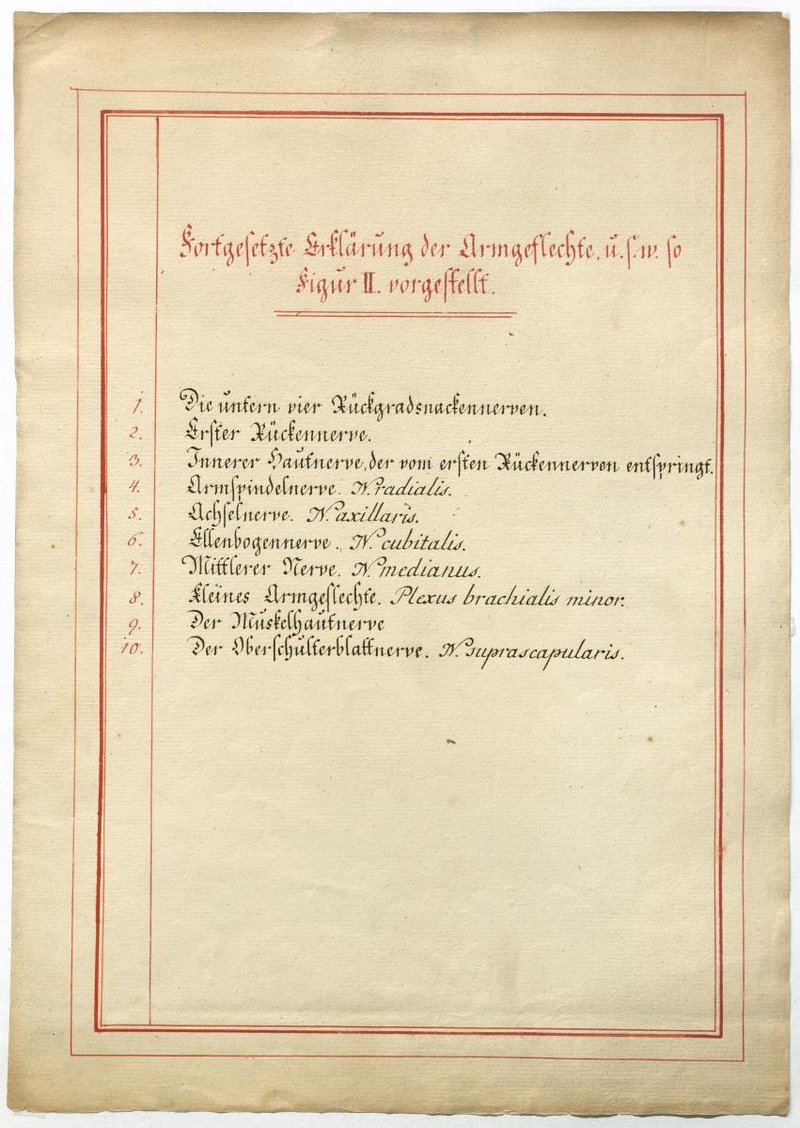 Fortgesetzte Erklärung der Armgeflechte. u. s. w. so
Figur II. vorgestellt.
1. Die untern vier Rückgradsnackennerven.
2. Erster Rückennerve.
3. Innerer Hautnerve, der vom ersten Rückennerven entspringt.
4. Armspindelnerve. N. radialis.
5. Achselnerve. N. axillaris.
6. Ellenbogennerve. N. cubitalis.
7. Mittlerer Nerve. N. medianus.
8. Kleines Armgeflechte. Plexus brachialis minor.
9. Der Muskelhautnerve
10. Der Oberschulterblattnerve. N. suprascapularis.